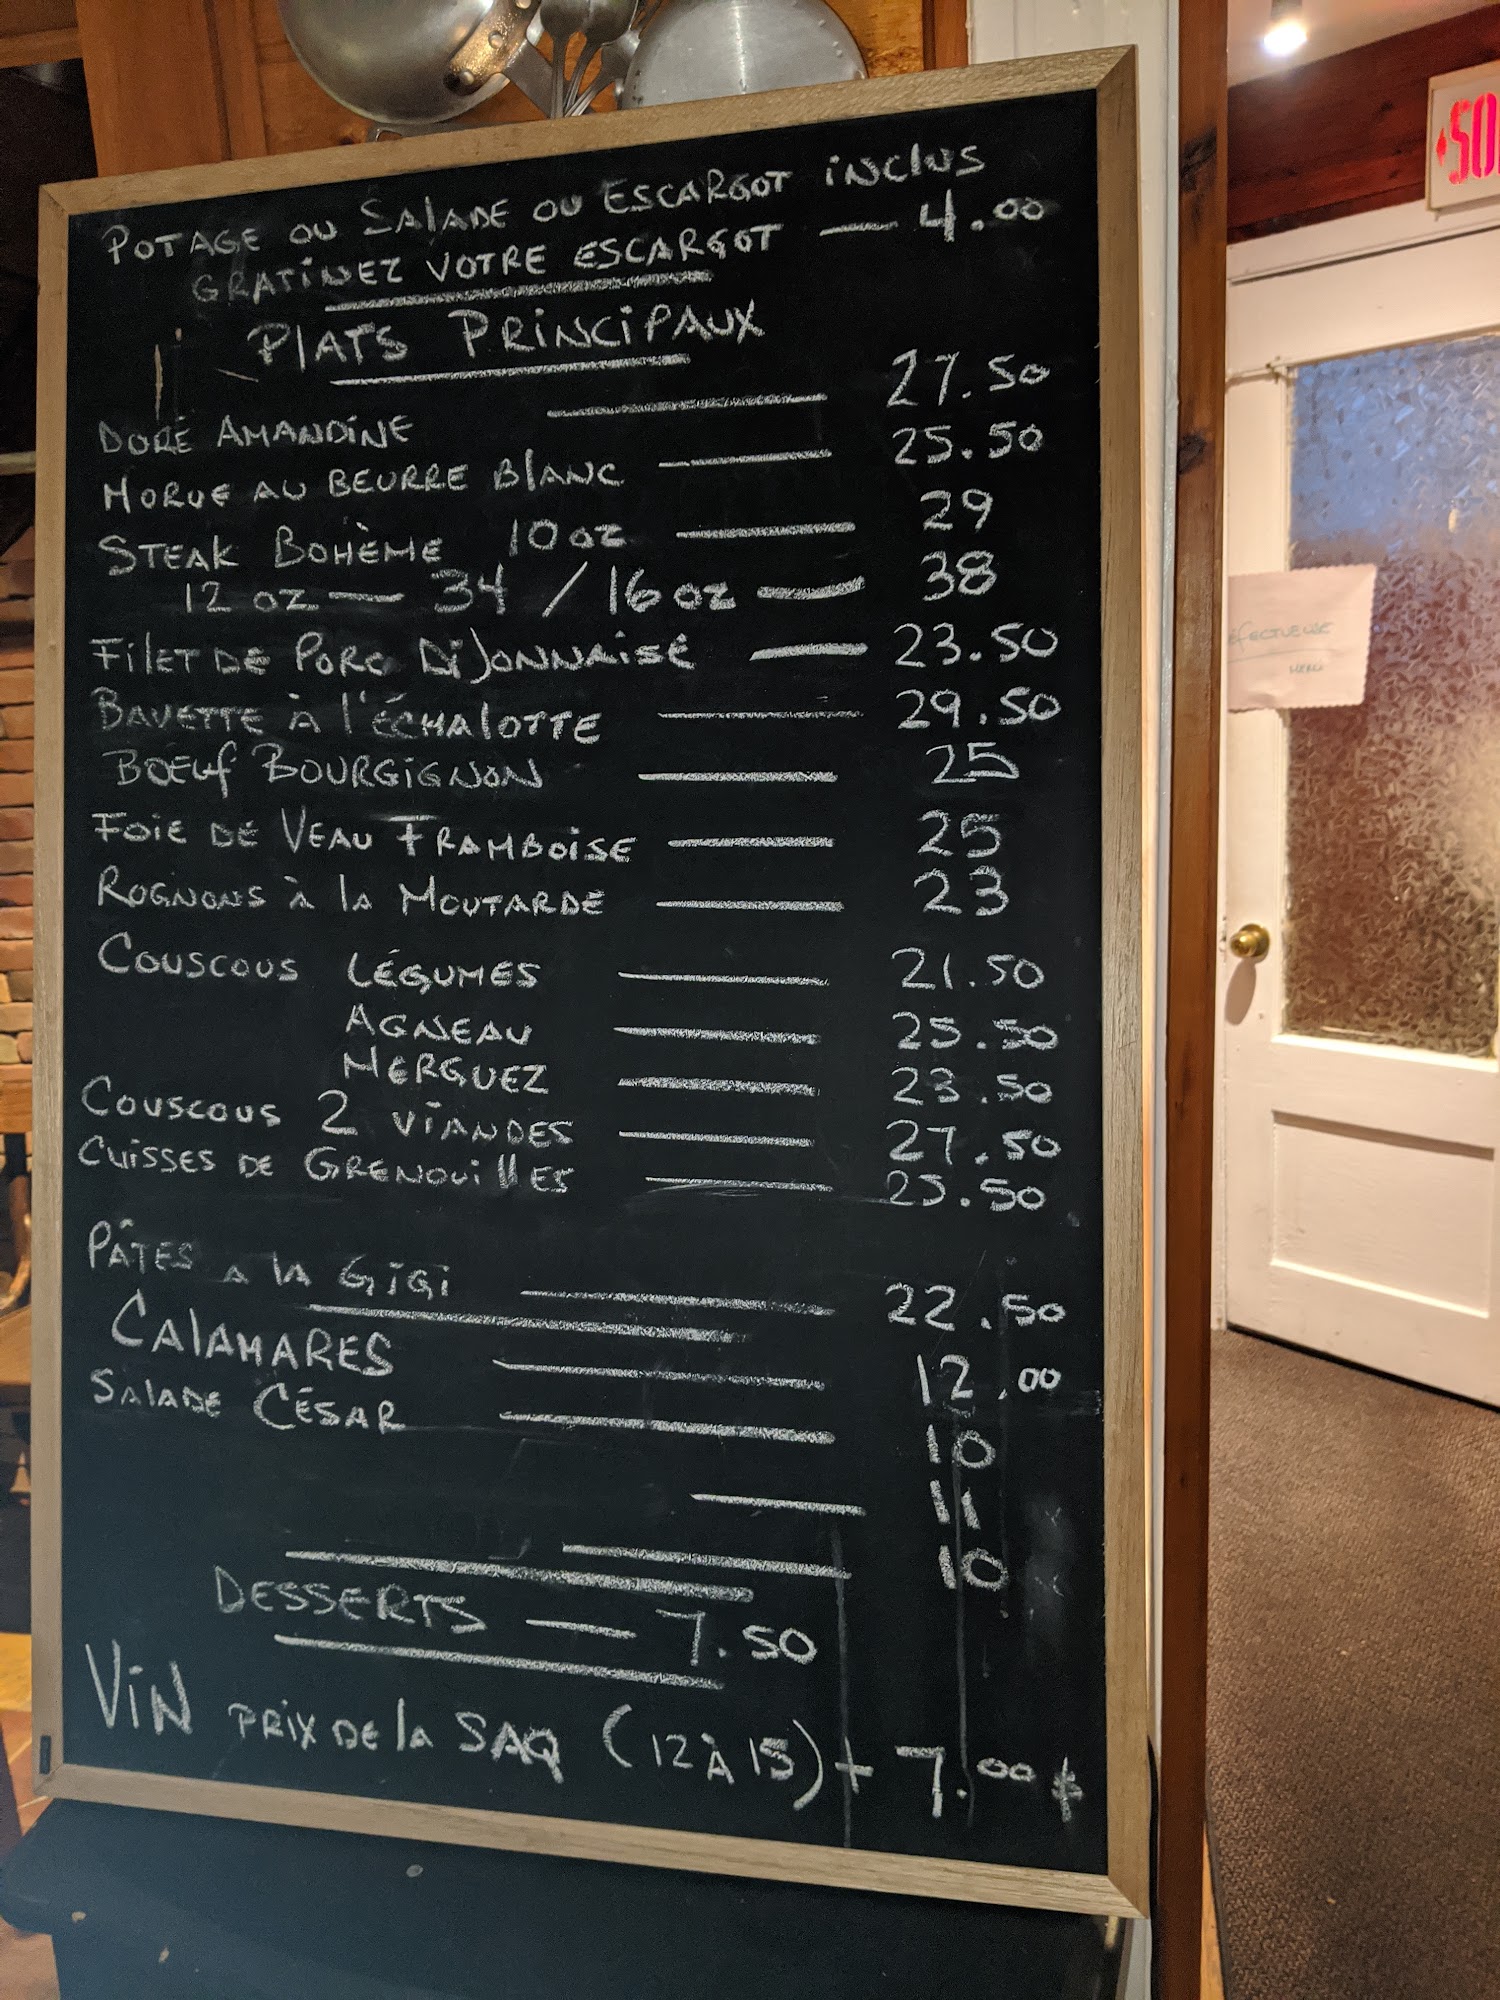 POTAGE OU SALADE OU ESCARGOT INCLUS
GRATINEZ VOTRE ESCARGOT — 4.00
PLATS PRINCIPAUX
DORÉ AMANDINE — 27.50
MORUE AU BEURRE BLANC — 25.50
STEAK BOHÈME 10 OZ — 29
12 OZ — 34 / 16 OZ — 38
FILET DE PORC DIJONNAISE — 23.50
BAVETTE À L'ÉCHALOTTE — 29.50
BOEUF BOURGIGNON — 25
FOIE DE VEAU FRAMBOISE — 25
ROGNONS À LA MOUTARDE — 23
COUSCOUS LÉGUMES — 21.50
AGNEAU — 25.50
MERGUEZ — 23.50
COUSCOUS 2 VIANDES — 27.50
CUISSES DE GRENOUILLES — 25.50
PÂTES A LA GIGI — 22.50
CALAMARES — 12.00
SALADE CÉSAR — 10
— 11
— 10
DESSERTS — 7.50
VIN PRIX DE LA SAQ (12 À 15) + 7.00 $
MERCI